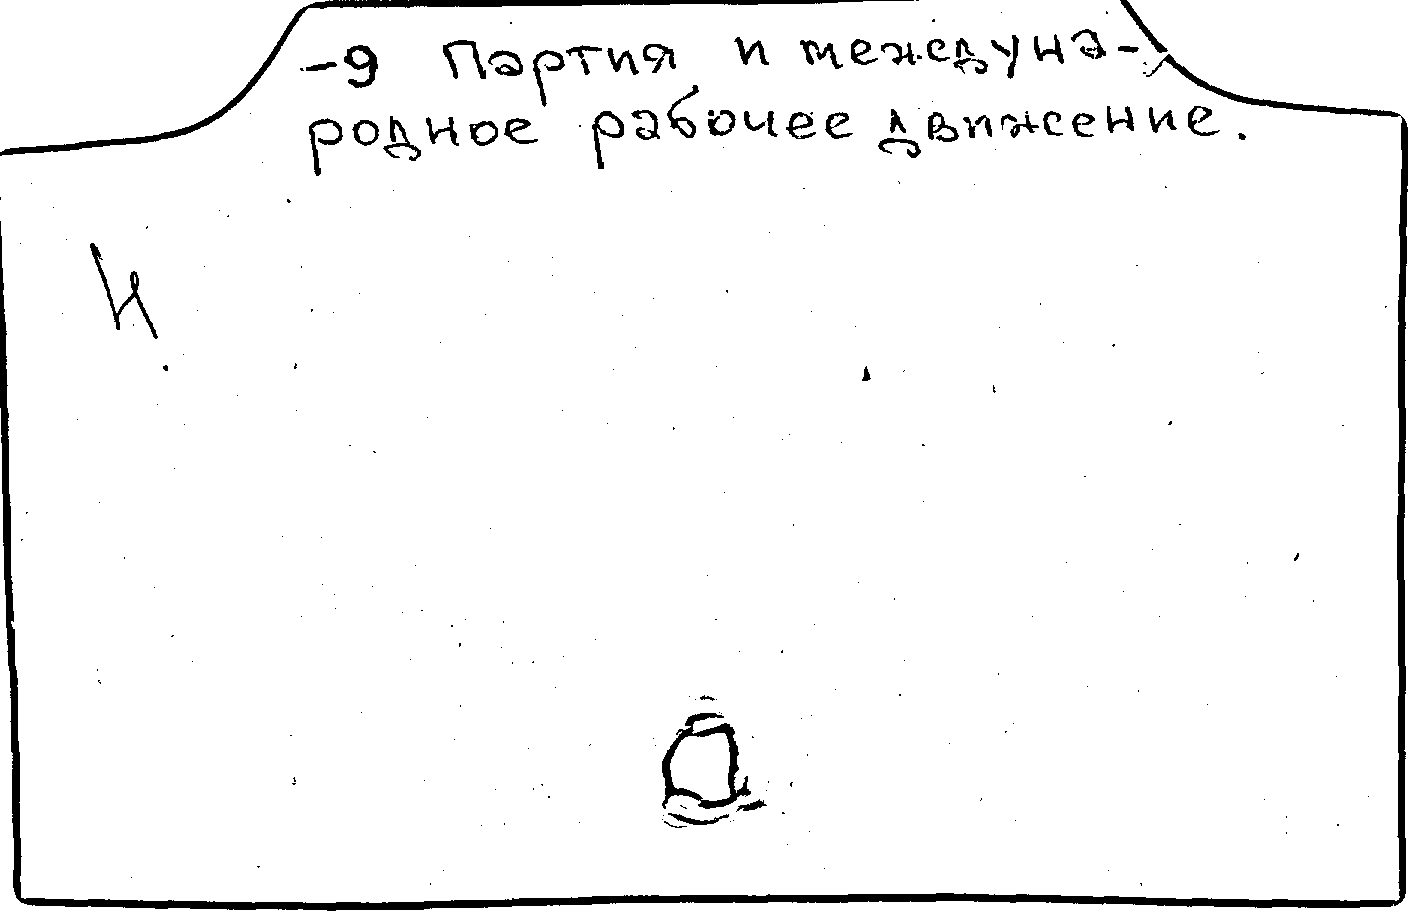 -9 Партия и междуна-
родное рабочее движение.
И